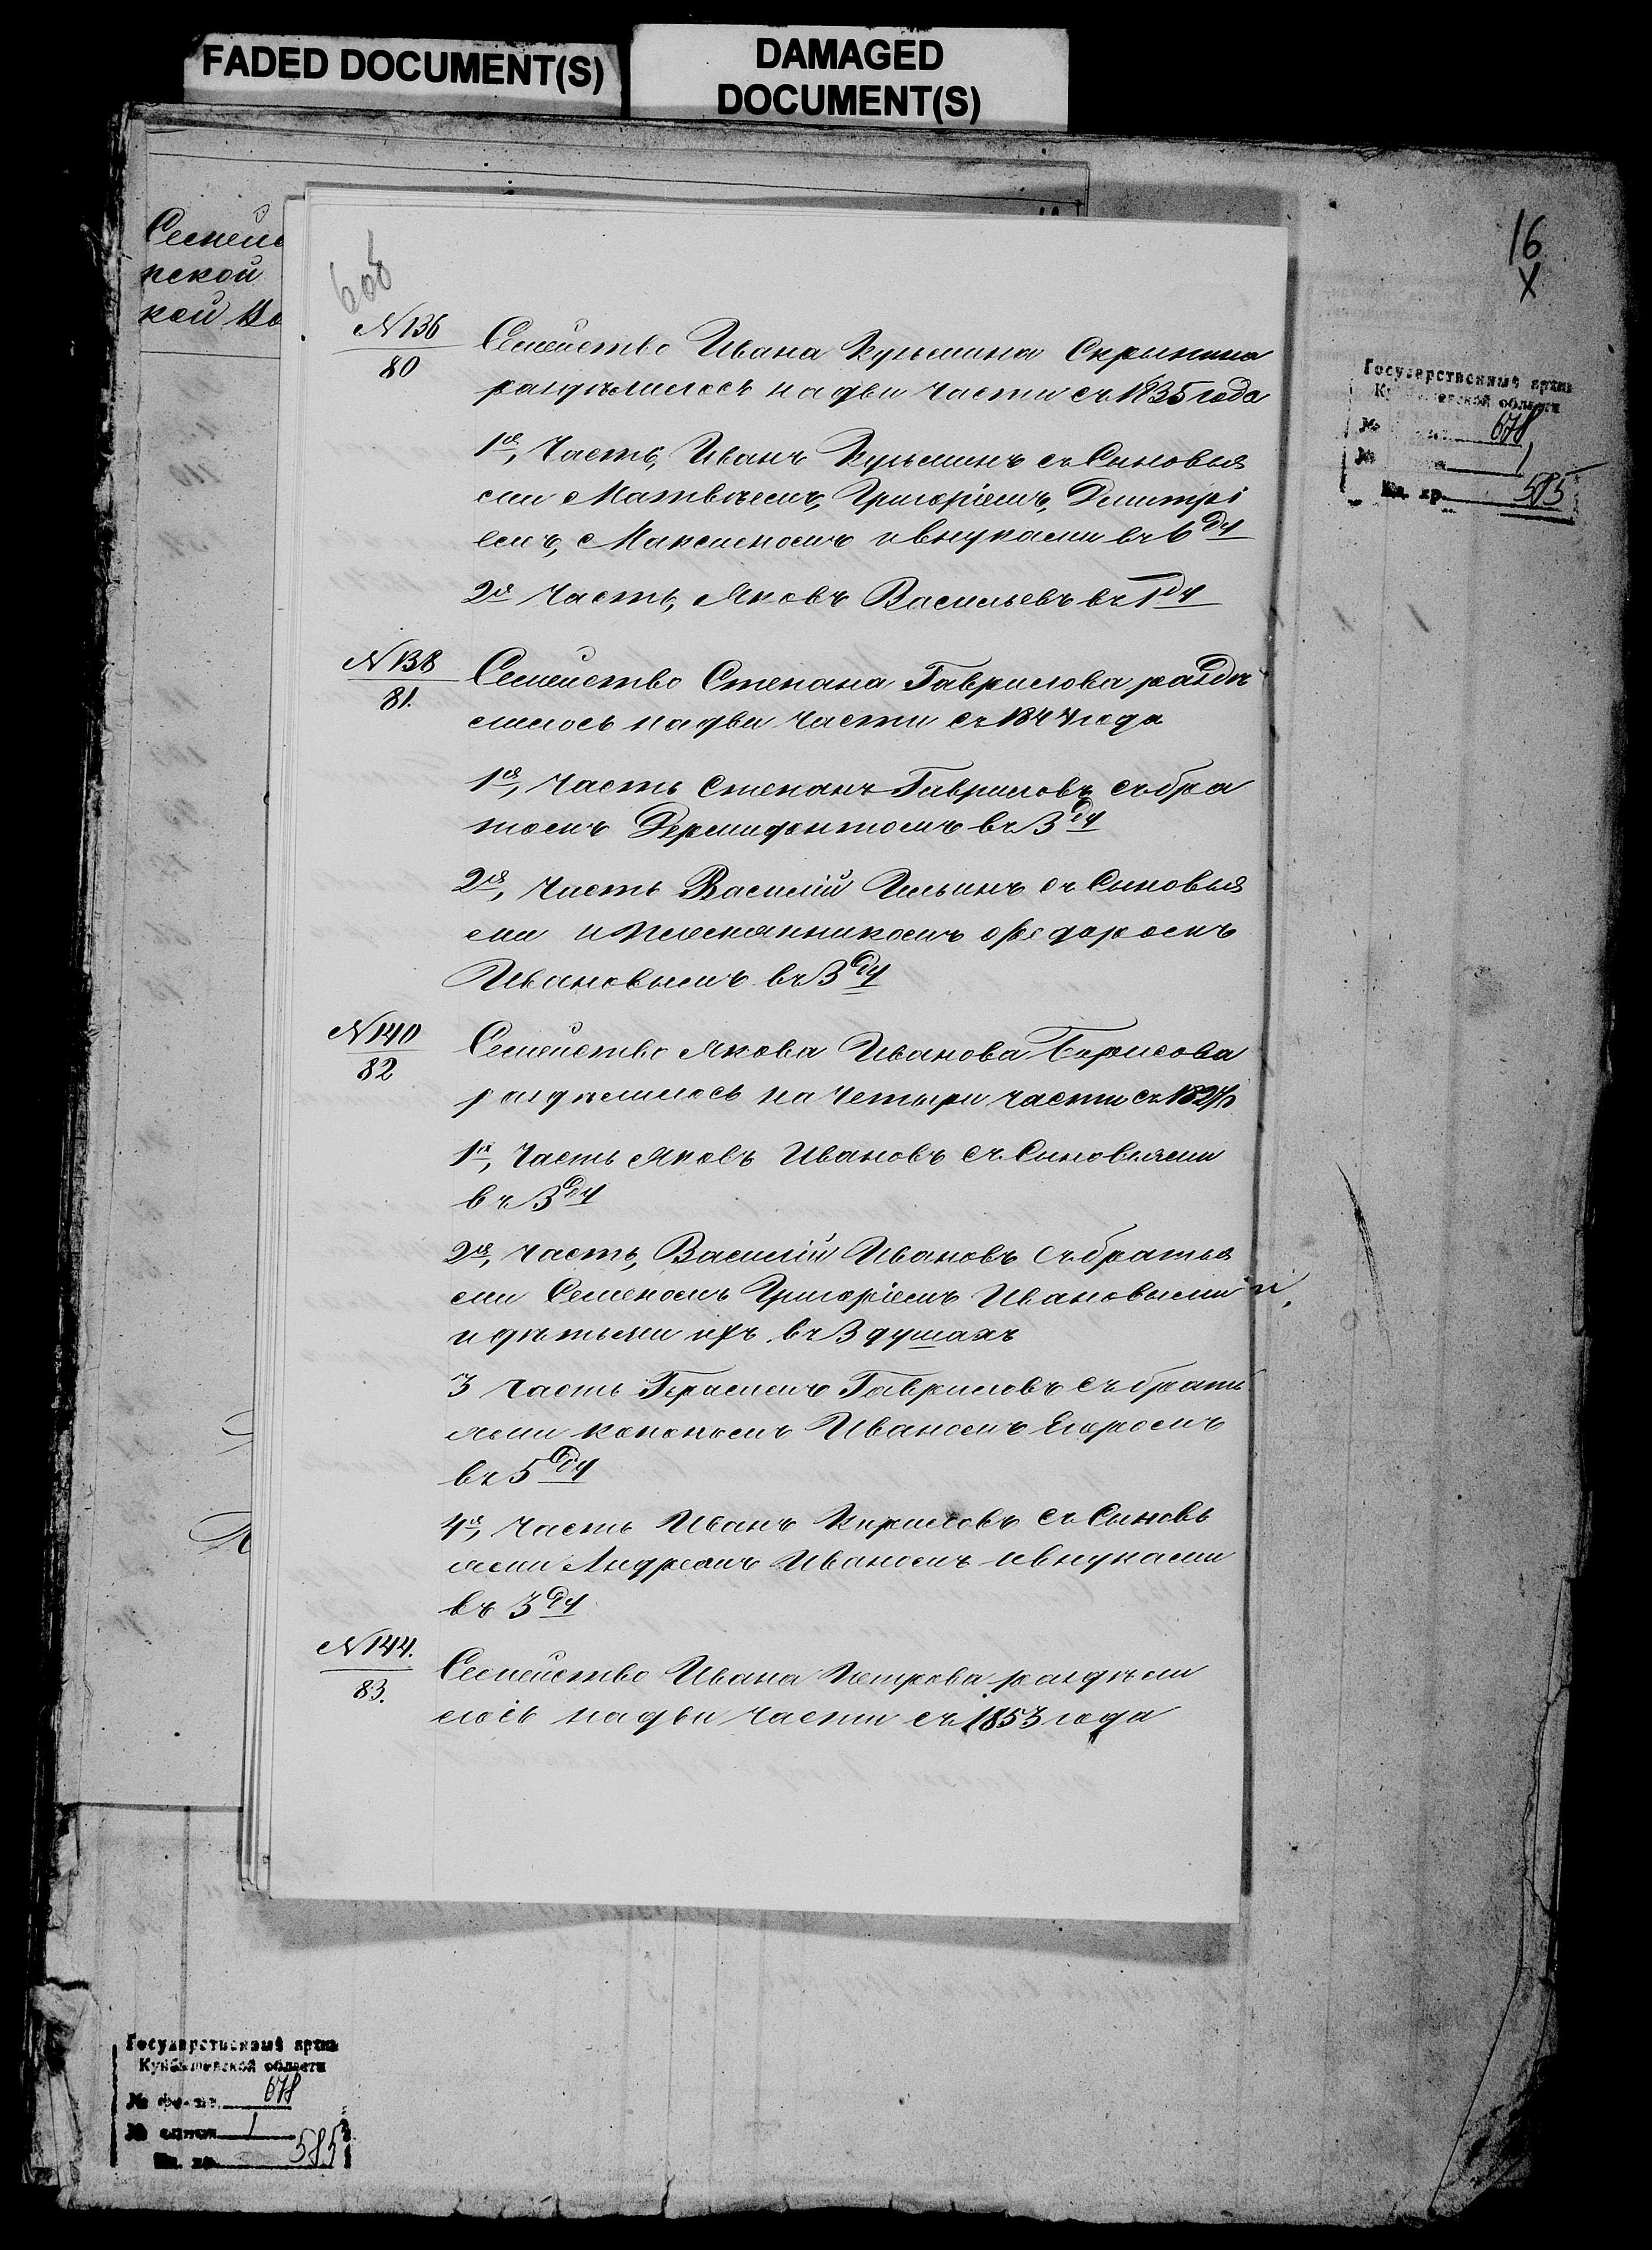 FADED DOCUMENT(S)
DAMAGED
DOCUMENT(S)
16
Х
608
№ 136
80
Семейство Ивана Кузьмина Скрыпина
раздѣлилось на двѣ части съ 1835 года
1я, Часть, Иванъ Кузьминъ съ Сыновья
ми Матвѣемъ, Григоріемъ, Дмитрі
емъ, Максимомъ и внуками въ 6 ду
2я Часть, Яковъ Васильевъ въ 1 ду
№ 138
81.
Семейство Степана Гаврилова раздѣ
лилось на двѣ части съ 1847 года
1я, Часть Степанъ Гавриловъ съ бра
томъ Дермидонтомъ въ 3 ду
2я, Часть Василій Ильинъ съ Сыновья
ми и племянникомъ Ѳедоромъ
Ивановымъ въ 3 ду
№ 140
82
Семейство Якова Иванова Борисова
раздѣлилось на Четыри части съ
1я, Часть Яковъ Ивановъ съ Сыновьями
въ 3 ду
2я, Часть, Василій Ивановъ съ братья
ми Семеномъ Григоріемъ Ивановыми
и дѣтьми ихъ въ 3 душахъ
3 Часть Герасимъ Гавриловъ съ брать
ями Конономъ Иваномъ Егоромъ
въ 5 ду
4я, Часть Иванъ Кириловъ съ Сыновь
ями Андреемъ Иваномъ и внуками
въ 3 ду
№ 144.
83.
Семейство Ивана Петрова раздѣли
лось на двѣ части съ 1853 года
Государственный архив
Куйбышевской области
№ фонда 678
№ описи 1
Ед. хр. 585
Государственный архив
Куйбышевской области
№ фонда 678
№ описи 1
Ед. хр. 585